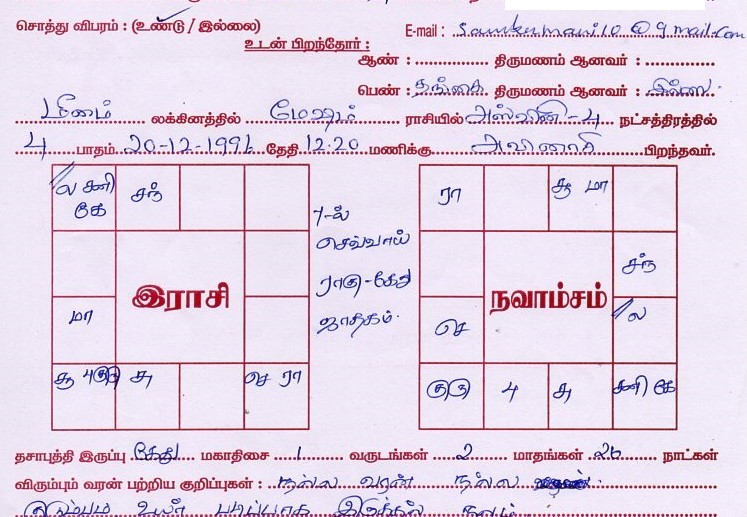 சொத்து விபரம் : (உண்டு / இல்லை) E-mail : @gmail.com
உடன் பிறந்தோர் :
ஆண் : திருமணம் ஆனவர் :
பெண் : தங்கை திருமணம் ஆனவர் : இல்லை
மீனம் லக்கினத்தில் மேஷம் ராசியில் அஸ்வினி - 4 நட்சத்திரத்தில்
4 பாதம் 20-12-1996 தேதி 12.20 மணிக்கு அவிநாசி பிறந்தவர்.
ல சனி கே சந்
ரா சூ மா
7-ல் செவ்வாய் ராகு-கேது ஜாதகம்.
சந்
இராசி நவாம்சம்
மா
செ ல
சூ பு குரு சு செ ரா
குரு பு சு சனி கே
தசாபுத்தி இருப்பு கேது மகாதிசை 1 வருடங்கள் 2 மாதங்கள் 26 நாட்கள்
விரும்பும் வரன் பற்றிய குறிப்புகள் : நல்ல வரன் நல்ல